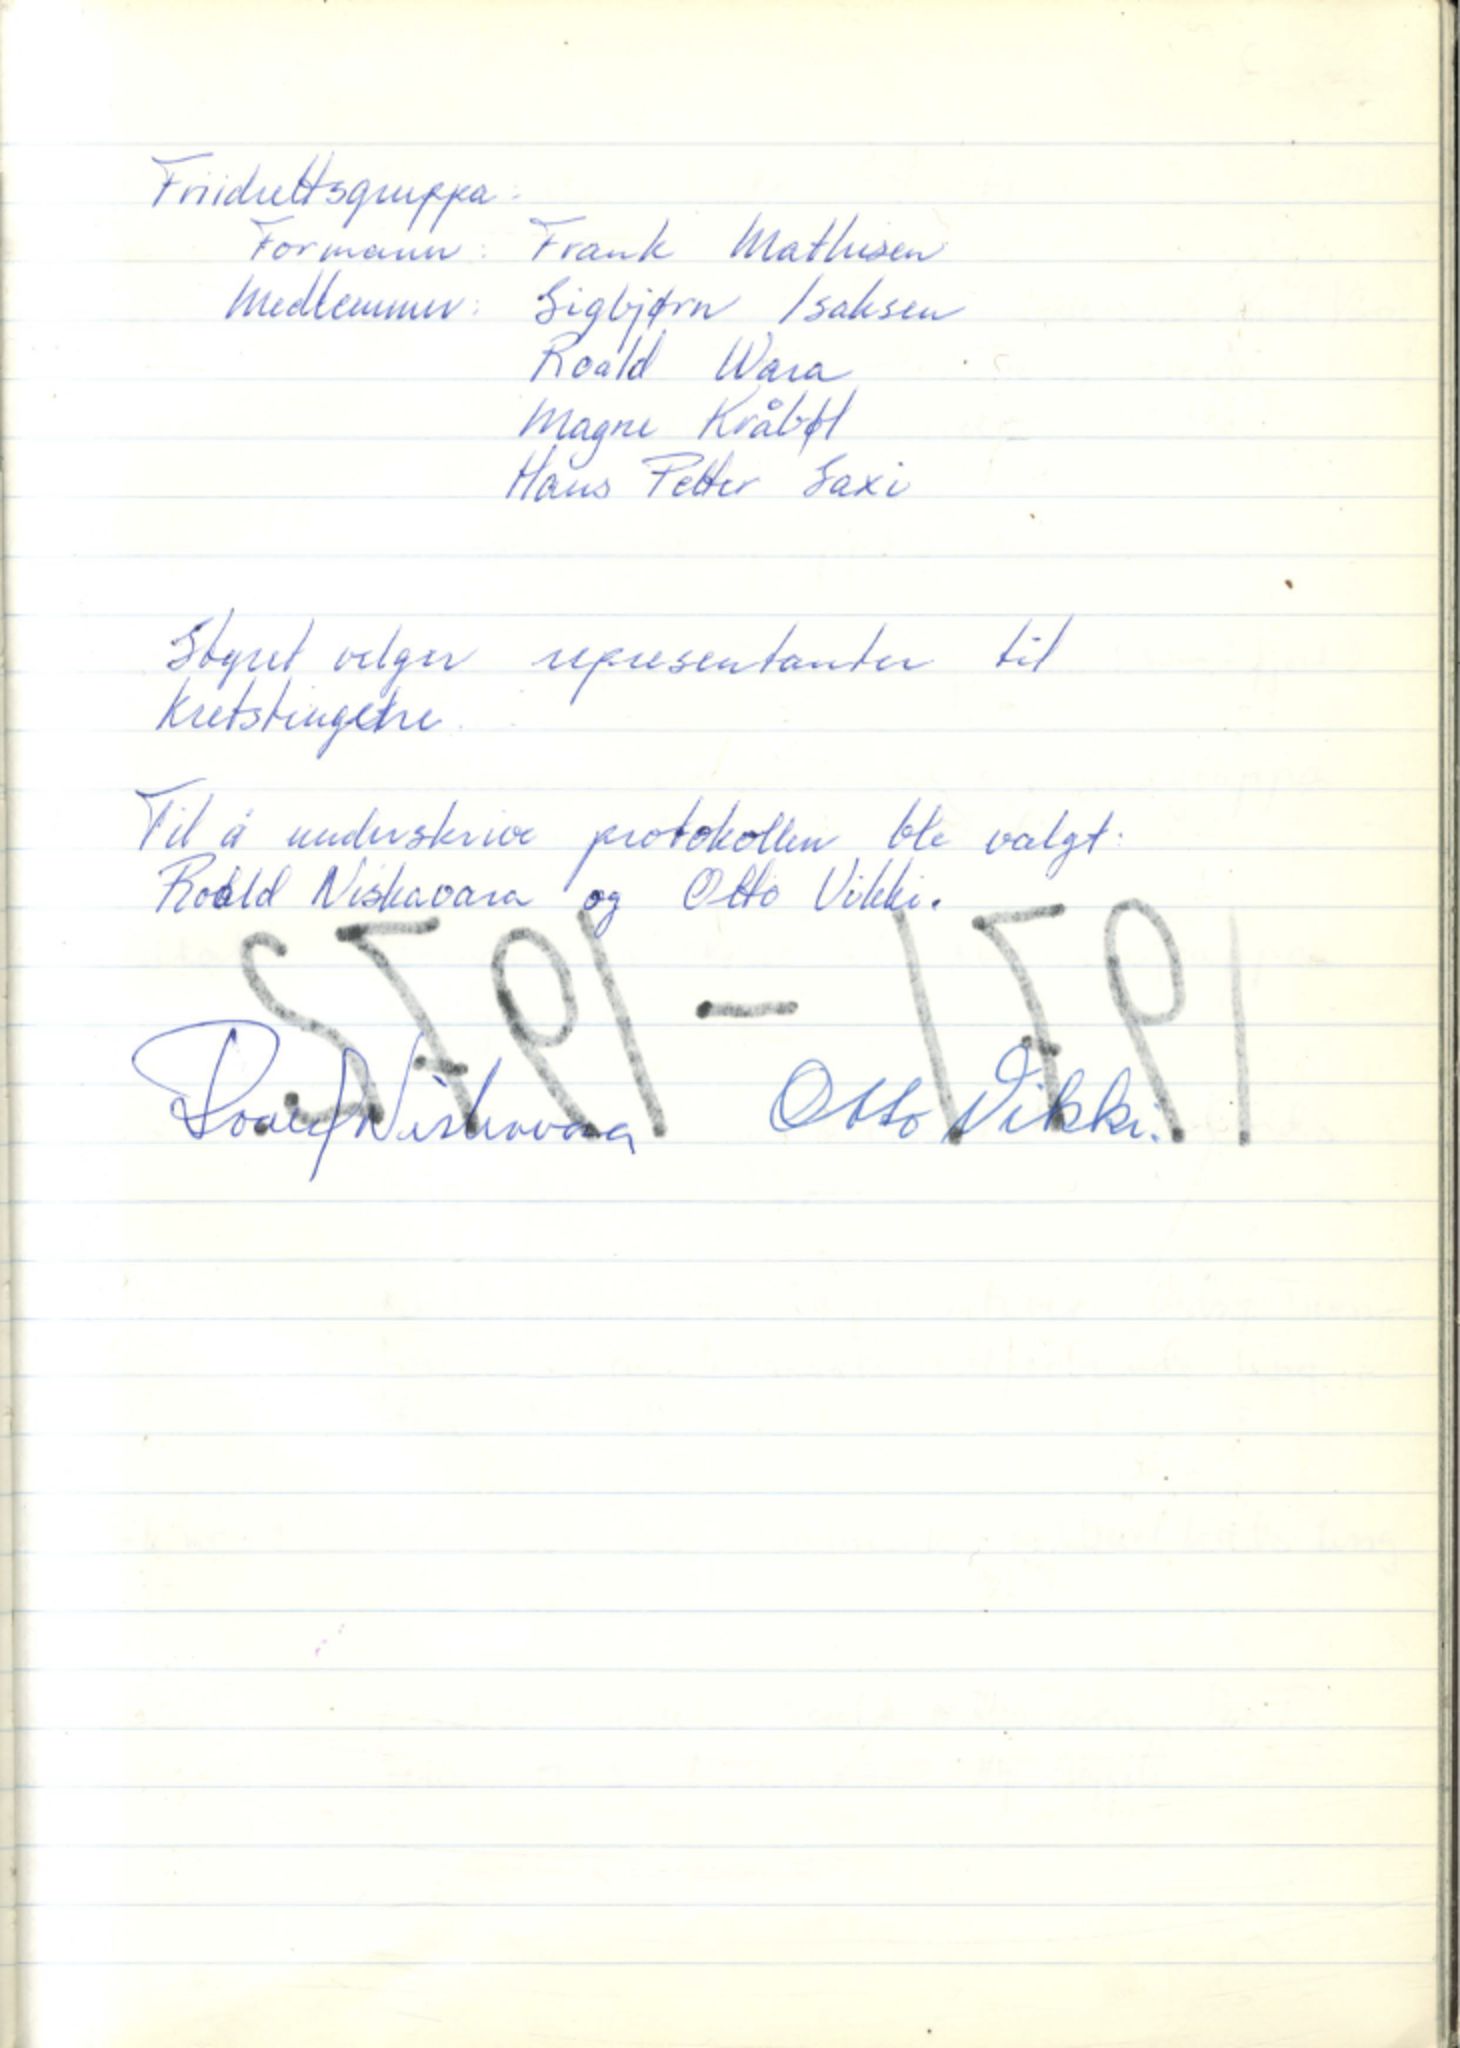 Friidrettsgruppa:
Formann: Frank Mathisen
Medlemmer: Sigbjørn Isaksen
Roald Wara
Magne Kråbøl
Hans Petter Saxi
Styret velger representanter til
kretstingene.
Til å underskrive protokollen ble valgt:
Roald Niskavara og Otto Vikki.
1971 – 1972
Roald Niskavaara Otto Vikki.